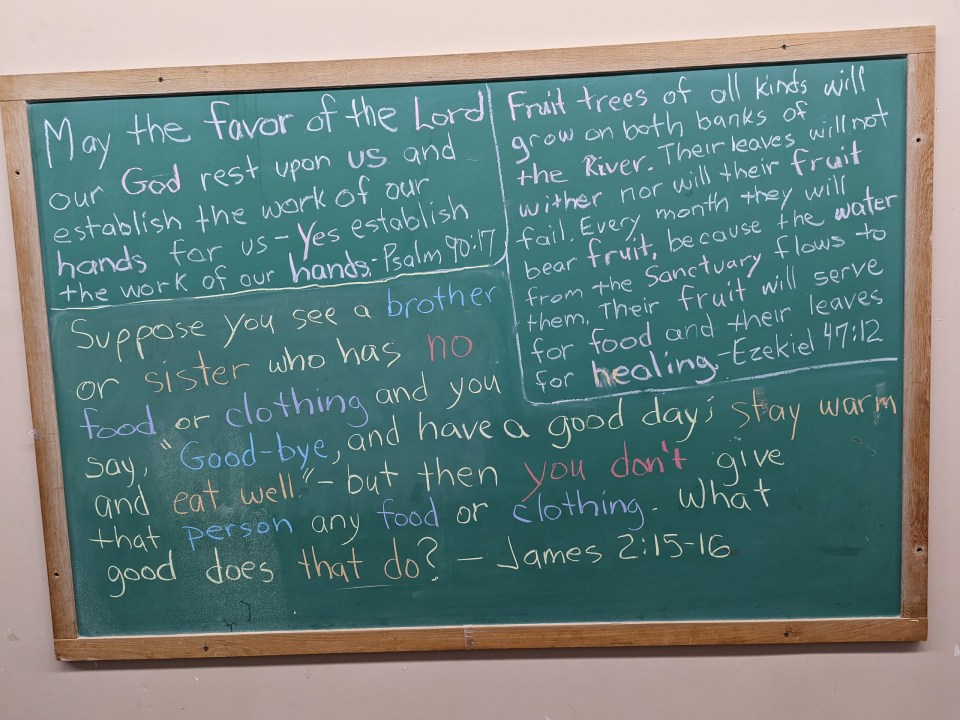 May the favor of the Lord
our God rest upon us and
establish the work of our
hands for us - Yes establish
the work of our hands. - Psalm 90:17
Fruit trees of all kinds will
grow on both banks of
the River. Their leaves will not
wither nor will their fruit
fail. Every month they will
bear fruit, because the water
from the Sanctuary flows to
them. Their fruit will serve
for food and their leaves
for healing. - Ezekiel 47:12
Suppose you see a brother
or sister who has no
food or clothing and you
say, "Good-bye, and have a good day; stay warm
and eat well." - but then you don't give
that person any food or clothing. What
good does that do? - James 2:15-16